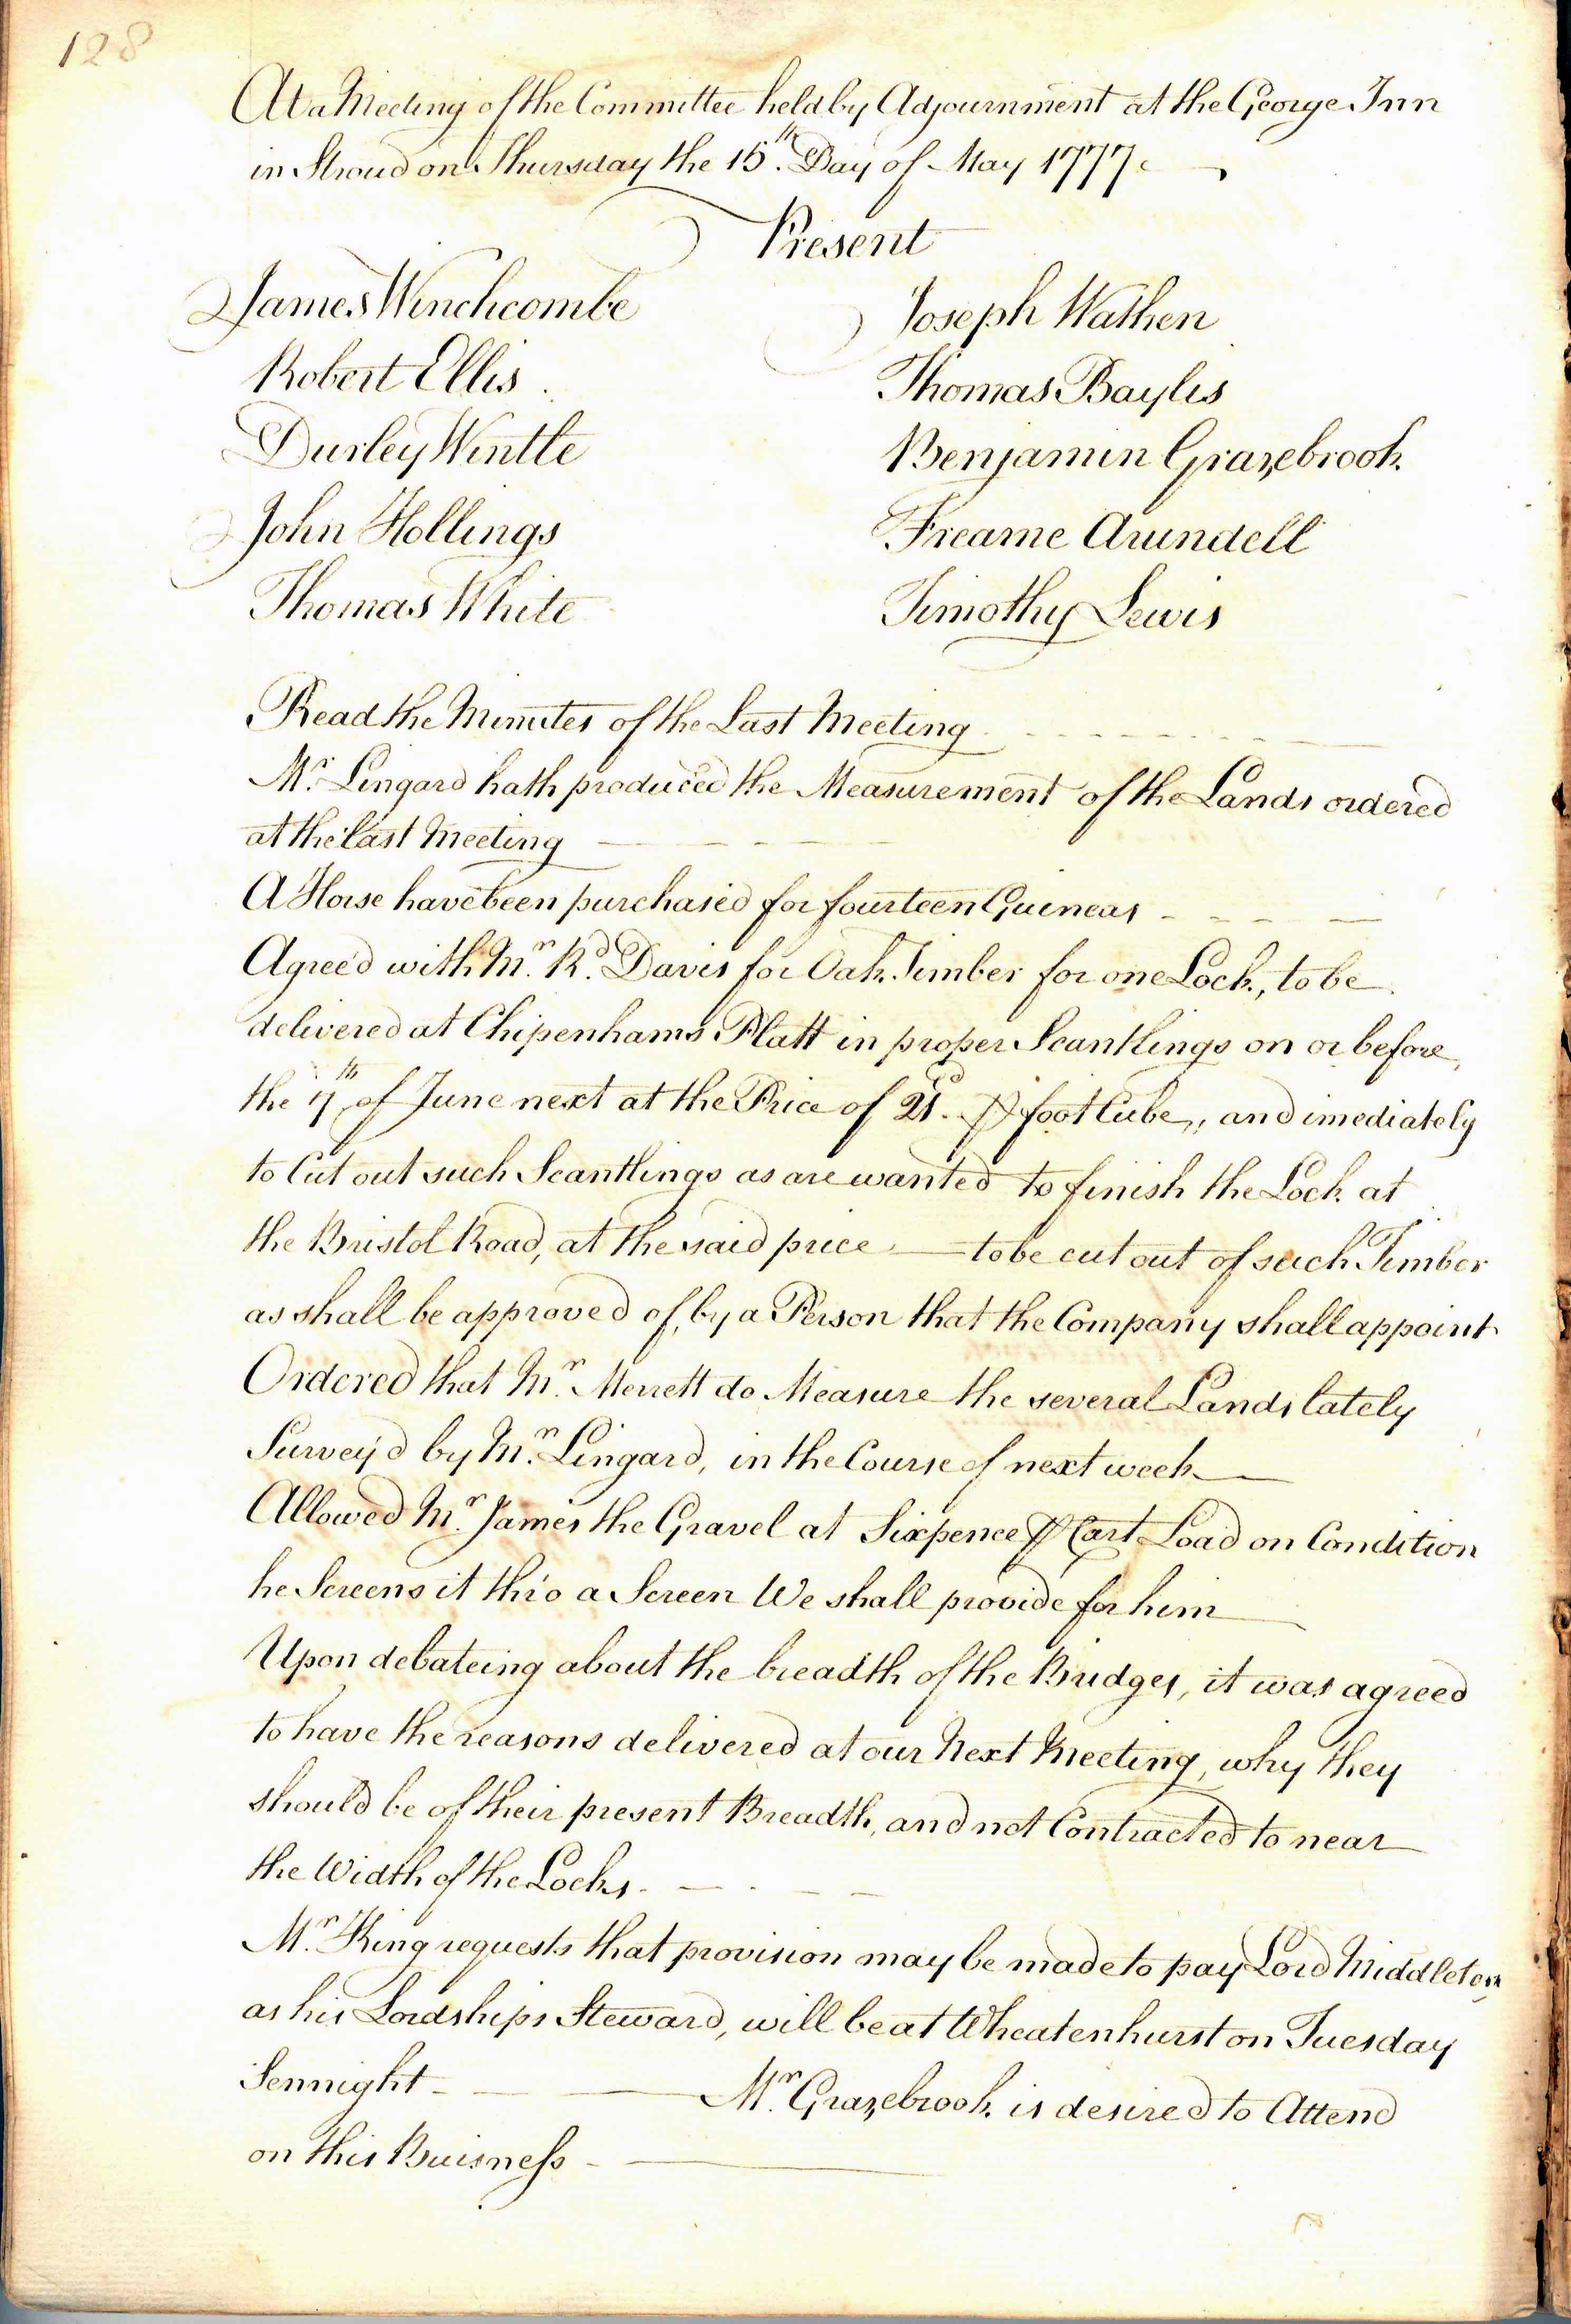 128
At a Meeting of the Committee held by Adjournment at the George Inn
in Stroud on Thursday the 15th. Day of May 1777.
Present
James Winchcombe
Joseph Wathen
Robert Ellis
Thomas Baylis
Durley Wintle
Benjamin Grazebrook
John Hollings
Freame Arundell
Thomas White
Timothy Lewis
Read the Minutes of the Last Meeting
Mr. Lingard hath produced the Measurement of the Lands ordered
at the last Meeting
A Horse have been purchased for fourteen Guineas
Agree'd with Mr. Rd. Davis for Oak Timber for one Lock, to be
delivered at Chipenhams Platt in proper Scantlings on or before
the 7th of June next at the Price of 21d. ⅌ foot Cube, and imediately
to Cut out such Scantlings as are wanted to finish the Lock at
the Bristol Road, at the said price — to be cut out of such Timber
as shall be approved of, by a Person that the Company shall appoint
Ordered that Mr. Merrett do Measure the several Lands lately
Survey'd by Mr. Lingard, in the Course of next week
Allowed Mr. James the Gravel at Sixpence ⅌ Cart Load on Condition
he Screens it thro' a Screen We shall provide for him
Upon debateing about the breadth of the Bridges, it was agreed
to have the reasons delivered at our Next Meeting, why they
should be of their present Breadth, and not Contracted to near
the Width of the Locks
Mr. King requests that provision may be made to pay Lord Middleton,
as his Lordships Steward, will be at Wheatenhurst on Tuesday
Sennight — Mr. Grazebrook is desired to Attend
on this Buisness